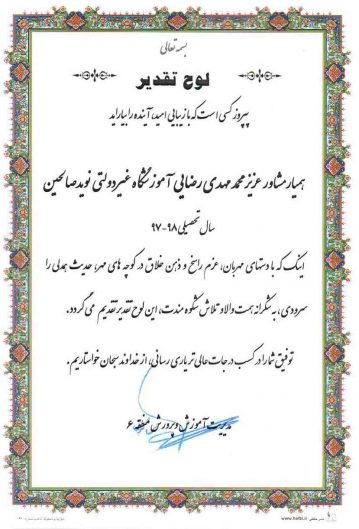 بسمه تعالی
لوح تقدیر
پیروز کسی است که با زیبایی امید، آینده را بیاراید
همیار مشاور عزیز محمد مهدی رضایی آموزشگاه غیردولتی نوید صالحین
سال تحصیلی ۹۸-۹۷
اینک که با دستهای مهربان، عزم راسخ و ذهن خلاق در کوچه های مهر، حدیث همدلی را
سرودی، به شکرانه همت والا و تلاش شکوهمندت، این لوح تقدیر تقدیم می گردد.
توفیق شما را در کسب درجات عالی تر یاری رسانی، از خداوند سبحان خواستاریم.
مدیریت آموزش و پرورش منطقه ۶
www.hafbl.ir